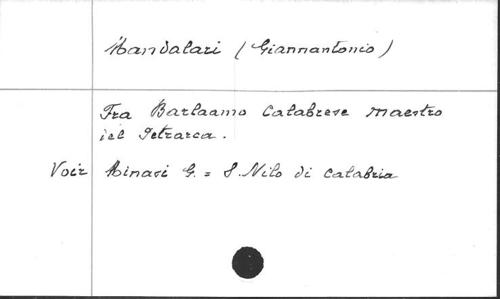 Mandalari (Giannantonio)
Fra Barlaamo Calabrese maestro
del Petrarca.
Voir Minasi G. = S. Nilo di Calabria